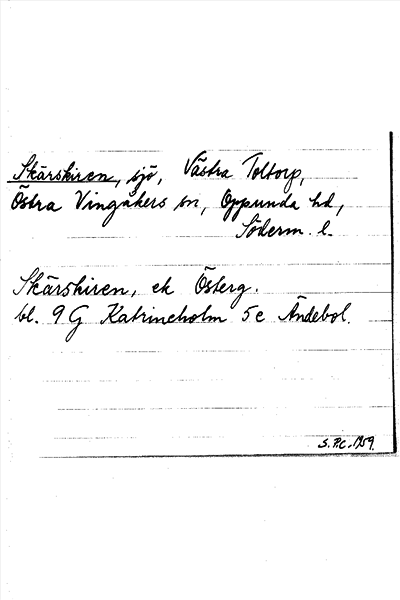 Skärskiren, sjö, Västra Toltorp,
Östra Vingåkers sn, Oppunda hd,
Söderm. l.
Skärskiren, ek Österg.
bl. 9 G Katrineholm 5c Ändebol.
S.P.C. 1959.